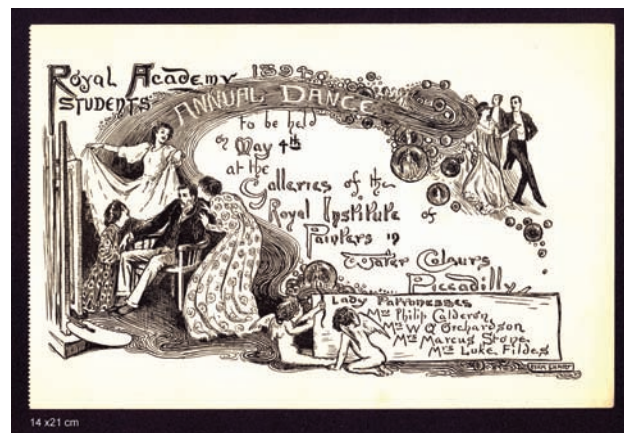 Royal Academy
Students'
1894
Annual Dance
to be held
on May 4th
at the
Galleries of the
Royal Institute of
Painters in
Water Colours
Piccadilly
Lady Patronesses
Mrs Philip Calderon
Mrs W Q Orchardson
Mrs Marcus Stone
Mrs Luke Fildes
14 x21 cm